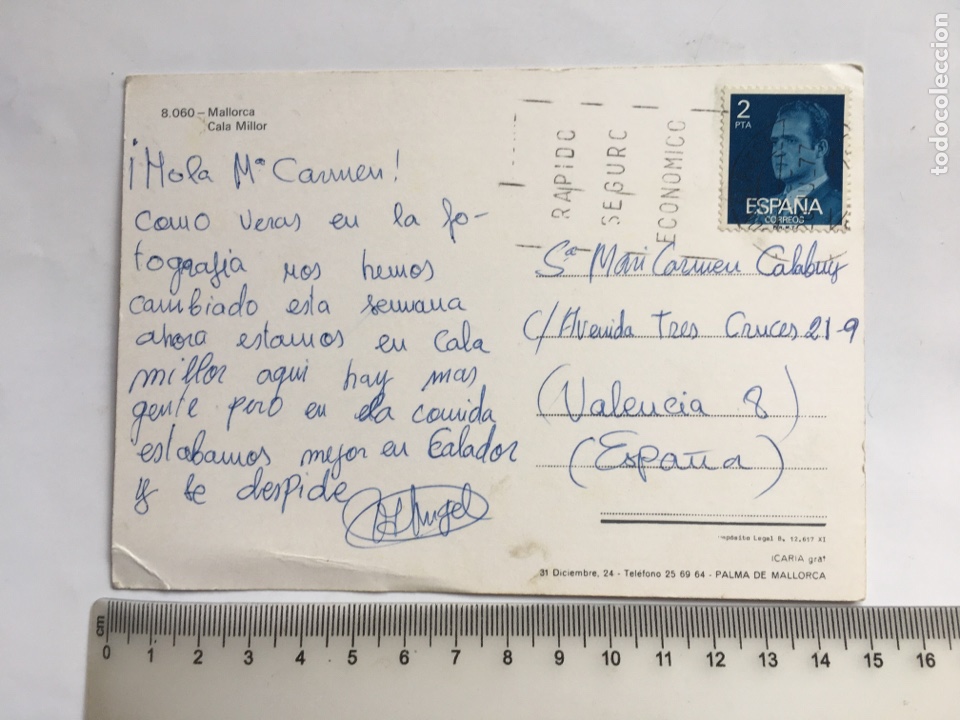 8.060 – Mallorca
Cala Millor
¡Hola Mª Carmen!
como veras en la fo-
tografia nos hemos
cambiado esta semana
ahora estamos en Cala
millor aqui hay mas
gente pero en la comida
estabamos mejor en Calador
y se despide
Angel
RAPIDO
SEGURO
ECONOMICO
2
PTA
ESPAÑA
CORREOS
Sª Mari Carmen Calabuig
C/ Avenida Tres Cruces 21-9
(Valencia 8)
(España)
Depósito Legal B. 12.617 XI
ICARIA graf
31 Diciembre, 24 - Teléfono 25 69 64 - PALMA DE MALLORCA
todocoleccion
cm
0 1 2 3 4 5 6 7 8 9 10 11 12 13 14 15 16